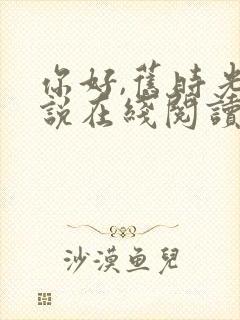 你好,舊時光
説在綫閲讀
沙漠魚兒